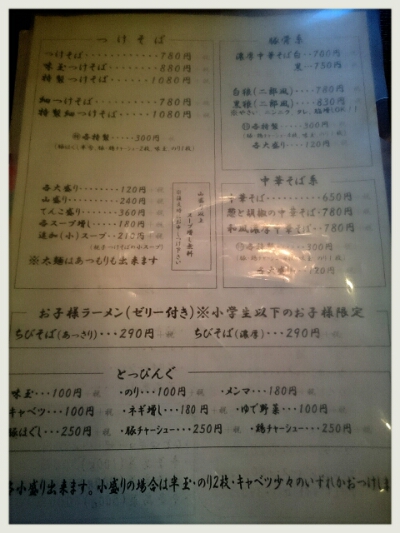 つけそば
つけそば・・・・・・・780円
味玉つけそば・・・・・880円
特製つけそば・・・・・1080円
細つけそば・・・・・・780円
特製細つけそば・・・・1080円
各特製・・・・・300円
各大盛り・・・・・・120円
山盛り・・・・・・・240円
てんこ盛り・・・・・360円
各スープ増し・・・・180円
追加(小)スープ・・・210円
※太麺はあつもりも出来ます
山盛り以上
スープ増し無料
豚骨系
濃厚中華そば白・・780円
黒・・750円
白雅(二郎風)・・・780円
黒雅(二郎風)・・・830円
各特製・・・・・300円
各大盛り・・・・・120円
中華そば系
中華そば・・・・・・650円
葱と胡椒の中華そば・780円
和風濃厚中華そば・・780円
各特製・・・・・300円
各大盛り・・・・120円
お子様ラーメン(ゼリー付き)※小学生以下のお子様限定
ちびそば(あっさり)・・・290円 ちびそば(濃厚)・・・290円
とっぴんぐ
味玉・・・100円 ・のり・・・100円 ・メンマ・・・180円
キャベツ・・・100円 ・ネギ増し・・・180円 ・ゆで野菜・・・100円
豚ほぐし・・・250円 ・豚チャーシュー・・・250円 ・鶏チャーシュー・・・250円
小盛り出来ます。小盛りの場合は半玉・のり2枚・キャベツ少々のいずれかおつけしま